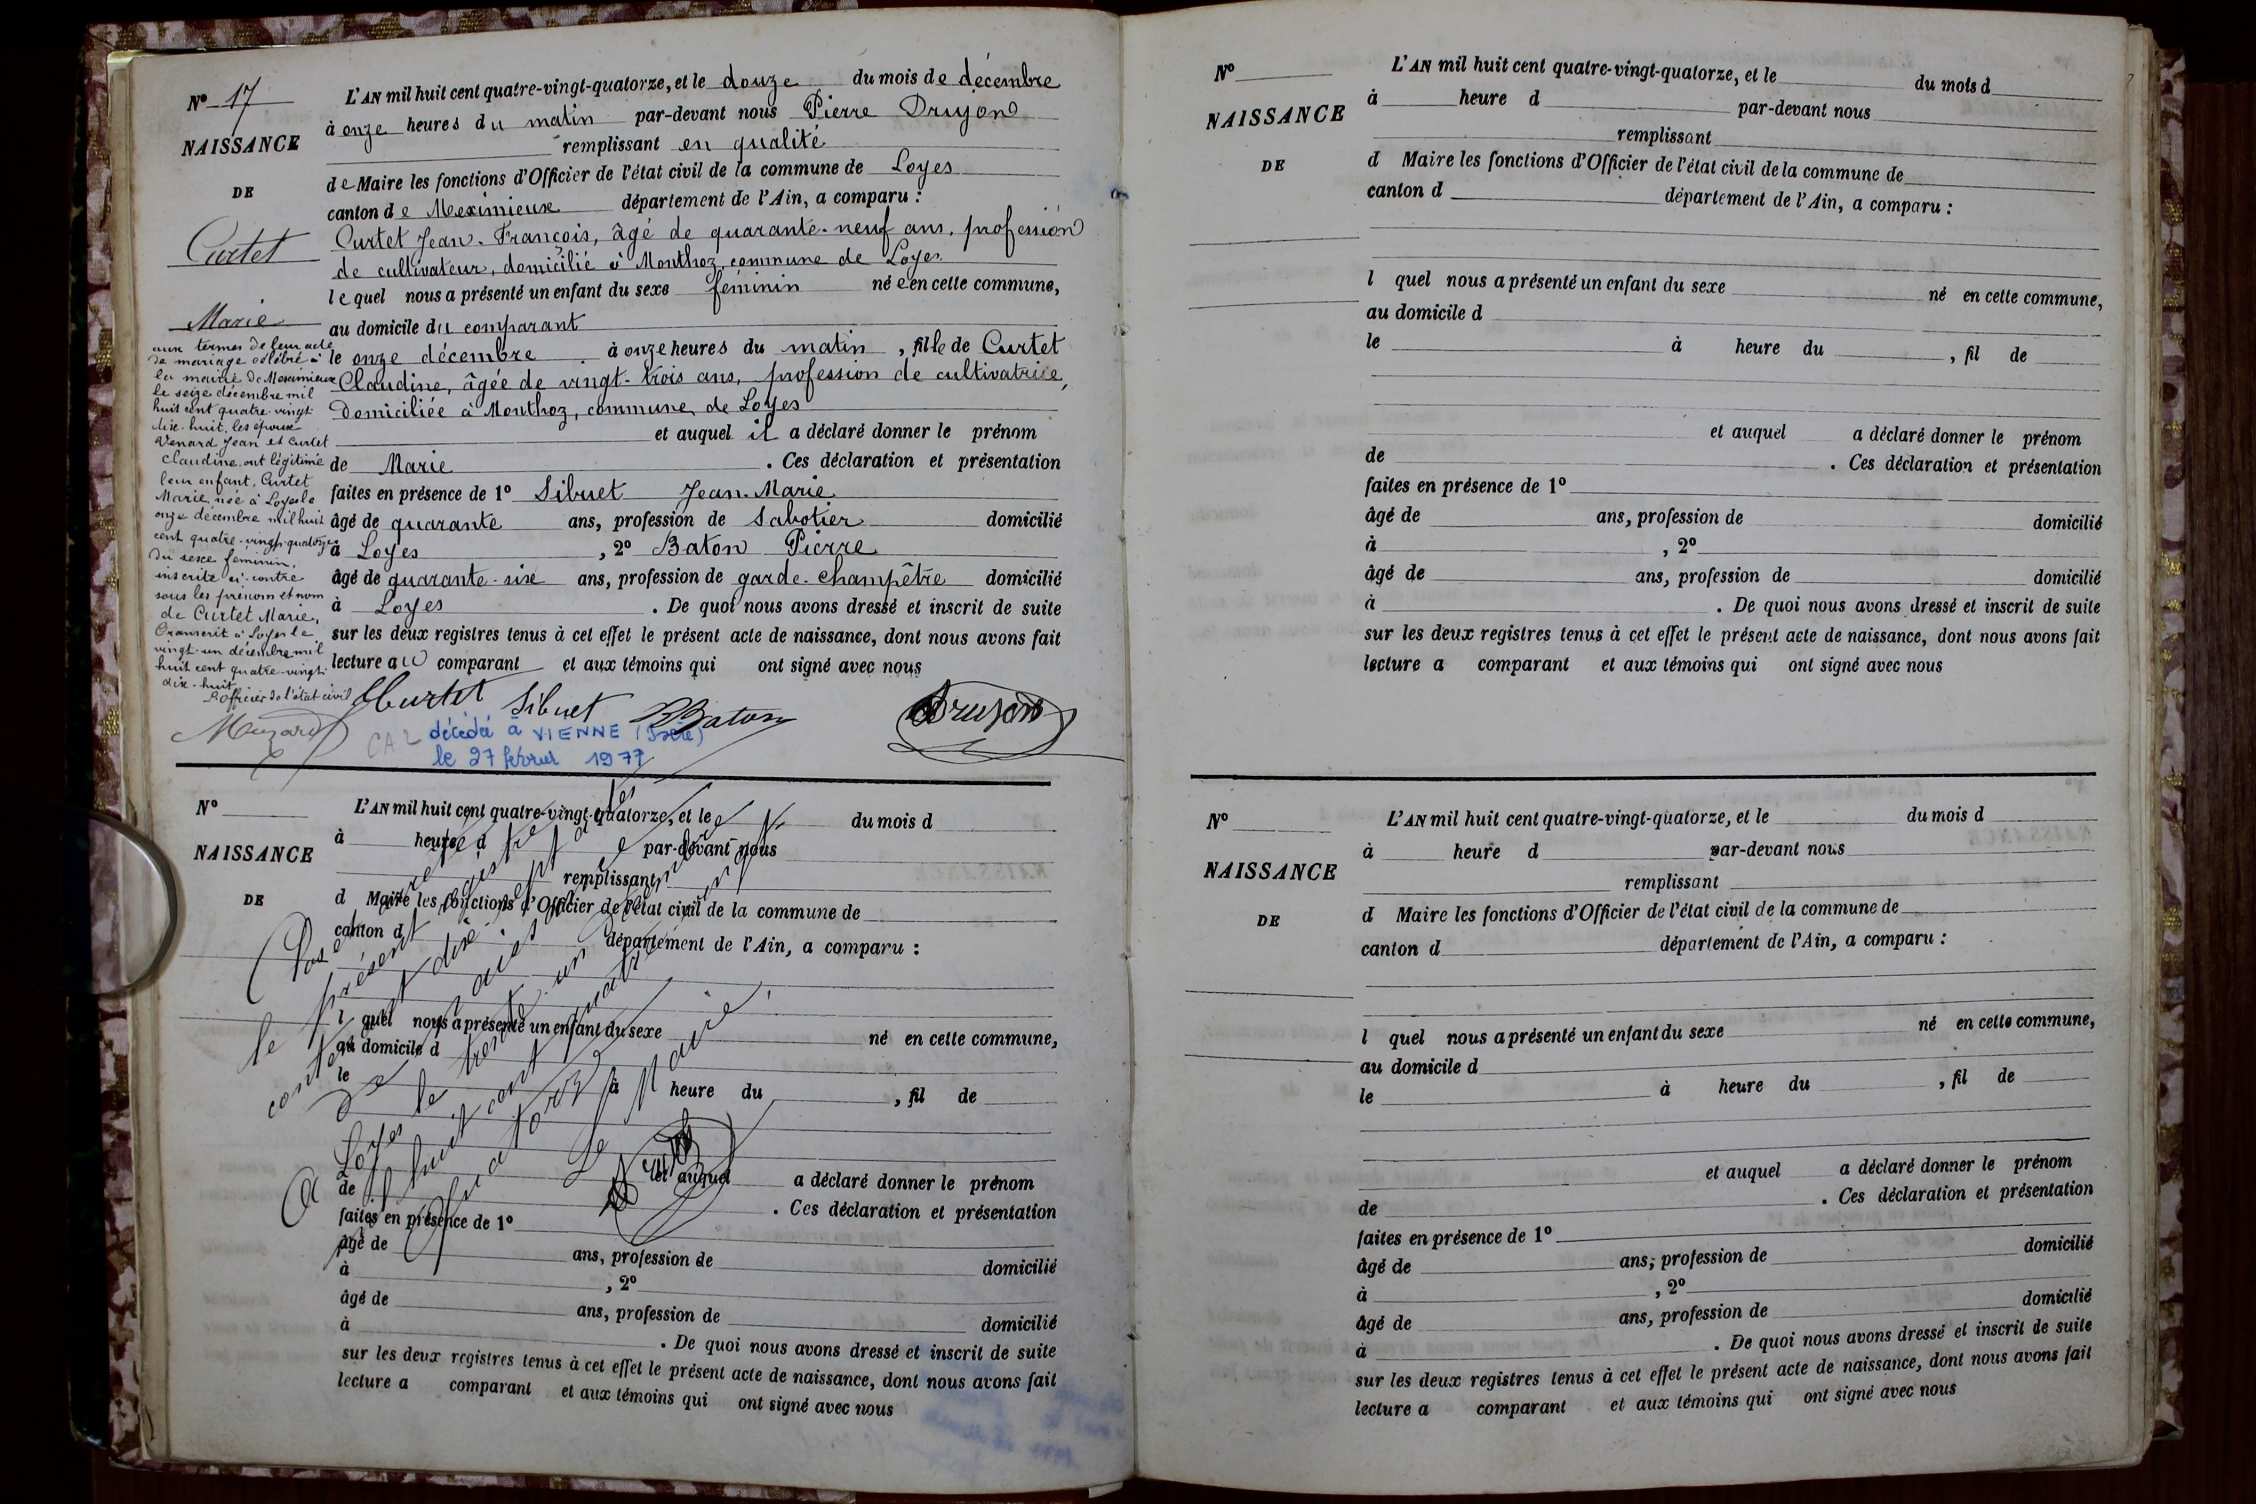 N° 17
NAISSANCE
DE
Curtet
Marie
L'AN mil huit cent quatre-vingt-quatorze, et le douze du mois de décembre
à onze heures du matin par-devant nous Pierre Druyon
remplissant en qualité
de Maire les fonctions d'Officier de l'état civil de la commune de Loyes
canton de Meximieux département de l'Ain, a comparu :
Curtet Jean-François, âgé de quarante-neuf ans, profession
de cultivateur, domicilié à Monthoz, commune de Loyes
lequel nous a présenté un enfant du sexe féminin né e en cette commune,
au domicile du comparant
le onze décembre à onze heures du matin, fille de Curtet
Claudine, âgée de vingt-trois ans, profession de cultivatrice,
domiciliée à Monthoz, commune de Loyes
et auquel il a déclaré donner le prénom
de Marie . Ces déclaration et présentation
faites en présence de 1° Sibuet Jean-Marie
âgé de quarante ans, profession de Sabotier domicilié
à Loyes , 2° Baton Pierre
âgé de quarante-six ans, profession de garde-champêtre domicilié
à Loyes . De quoi nous avons dressé et inscrit de suite
sur les deux registres tenus à cet effet le présent acte de naissance, dont nous avons fait
lecture au comparant et aux témoins qui ont signé avec nous
aux termes de leur acte
de mariage célébré à
la mairie de Meximieux
le seize décembre mil
huit cent quatre-vingt
dix-huit, les époux
Venard Jean et Curtet
Claudine ont légitimé
leur enfant, Curtet
Marie née à Loyes le
onze décembre mil huit
cent quatre-vingt-quatorze
du sexe féminin,
inscrite ci-contre
sous les prénom et nom
de Curtet Marie,
Transcrit à Loyes le
vingt-un décembre mil
huit cent quatre-vingt-
dix-huit
L'officier de l'état civil
Curtet Sibuet Baton Druyon
décédé à VIENNE (Isère)
le 27 février 1977
N°
NAISSANCE
DE
L'AN mil huit cent quatre-vingt-quatorze, et le du mois d
à heure d par-devant nous
remplissant
d Maire les fonctions d'Officier de l'état civil de la commune de
canton d département de l'Ain, a comparu :
l quel nous a présenté un enfant du sexe né en cette commune,
au domicile d
le à heure du , fil de
et auquel a déclaré donner le prénom
de . Ces déclaration et présentation
faites en présence de 1°
âgé de ans, profession de domicilié
à , 2°
âgé de ans, profession de domicilié
à . De quoi nous avons dressé et inscrit de suite
sur les deux registres tenus à cet effet le présent acte de naissance, dont nous avons fait
lecture a comparant et aux témoins qui ont signé avec nous
Clos et arrêté
le présent registre
contenant dix-sept actes
de naissance
à Loyes le trente-un décembre
mil huit cent quatre-vingt-
quatorze
Le Maire,
N°
NAISSANCE
DE
L'AN mil huit cent quatre-vingt-quatorze, et le du mois d
à heure d par-devant nous
remplissant
d Maire les fonctions d'Officier de l'état civil de la commune de
canton d département de l'Ain, a comparu :
l quel nous a présenté un enfant du sexe né en cette commune,
au domicile d
le à heure du , fil de
et auquel a déclaré donner le prénom
de . Ces déclaration et présentation
faites en présence de 1°
âgé de ans, profession de domicilié
à , 2°
âgé de ans, profession de domicilié
à . De quoi nous avons dressé et inscrit de suite
sur les deux registres tenus à cet effet le présent acte de naissance, dont nous avons fait
lecture a comparant et aux témoins qui ont signé avec nous
N°
NAISSANCE
DE
L'AN mil huit cent quatre-vingt-quatorze, et le du mois d
à heure d par-devant nous
remplissant
d Maire les fonctions d'Officier de l'état civil de la commune de
canton d département de l'Ain, a comparu :
l quel nous a présenté un enfant du sexe né en cette commune,
au domicile d
le à heure du , fil de
et auquel a déclaré donner le prénom
de . Ces déclaration et présentation
faites en présence de 1°
âgé de ans, profession de domicilié
à , 2°
âgé de ans, profession de domicilié
à . De quoi nous avons dressé et inscrit de suite
sur les deux registres tenus à cet effet le présent acte de naissance, dont nous avons fait
lecture a comparant et aux témoins qui ont signé avec nous